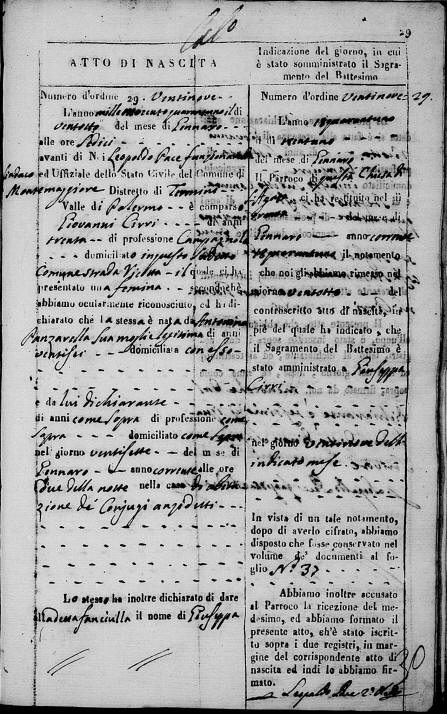 29
ATTO DI NASCITA
Numero d'ordine 29. Ventinove
L'anno millottocentoquarantuno il dì
ventotto del mese di Gennaro
alle ore sedici
avanti di Noi Leopoldo Pace funzionante
Sindaco
ed Uffiziale dello Stato Civile del Comune di
Montemaggiore Distretto di Termini
Valle di Palermo è comparso
Giovanni Cirri di anni
trenta di professione Campagnolo
domiciliato in questo
Comune Strada il quale ci ha
presentato una femina secondochè
abbiamo ocularmente riconosciuto, ed ha di-
chiarato che la stessa è nata da Antonina
Panzarella sua moglie legitima di anni
ventisei domiciliata con esso
e da lui dichiarante
di anni come sopra di professione come
sopra domiciliato come sopra
nel giorno ventisette del mese di
Gennaro anno corrente alle ore
due della notte nella casa di abita
zione de' Conjugi anzidetti
Lo stesso ha inoltre dichiarato di dare
alla detta fanciulla il nome di Giuseppa
Indicazione del giorno, in cui
è stato somministrato il Sagra-
mento del Battesimo
Numero d'ordine ventinove 29.
L'anno 18quarantuno
il dì trentuno
del mese di Gennaro
Il Parroco di questa Chiesa di
ci ha restituito nel dì
trenta del mese di
Gennaro anno corrente
18quarantuno il notamento
che noi gli abbiamo rimesso nel
giorno ventotto del
controscritto atto di nascita, in
piè del quale ha indicato, che
il Sagramento del Battesimo è
stato amministrato a Giuseppa
Cirri
nel giorno ventinove dello
indicato mese.
In vista di un tale notamento,
dopo di averlo cifrato, abbiamo
disposto che fosse conservato nel
volume de' documenti al fo-
glio N.° 37
Abbiamo inoltre accusato
al Parroco la ricezione del me-
desimo, ed abbiamo formato il
presente atto, ch'è stato iscrit-
to sopra i due registri, in mar-
gine del corrispondente atto di
nascita ed indi lo abbiamo fir-
mato.
Leopoldo Pace
30